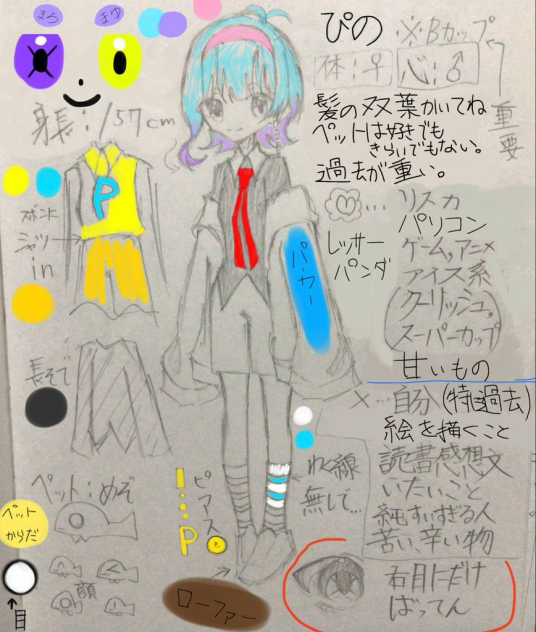 まゆ
ぴの ※Bカップ
体:♀ 心:♂
重要
身長:157cm
髪の双葉かいてね
ペットは好きでも
きらいでもない。
過去が重い。
P
ズボント
シャツ
in
…リスカ
パソコン
レッサー
パンダ
ゲーム。アニメ
アイス系
クーリッシュ。
スーパーカップ
甘いもの
パーカー
長そで
×…自分(特に過去)
絵を描くこと
読書感想文
いたいこと
純すいすぎる人
苦い、辛い物
わく線
無しで…
ペット:めぞ
ペット
からだ
ピアス
P
顔
↑
目
ローファー
右目にだけ
ばってん